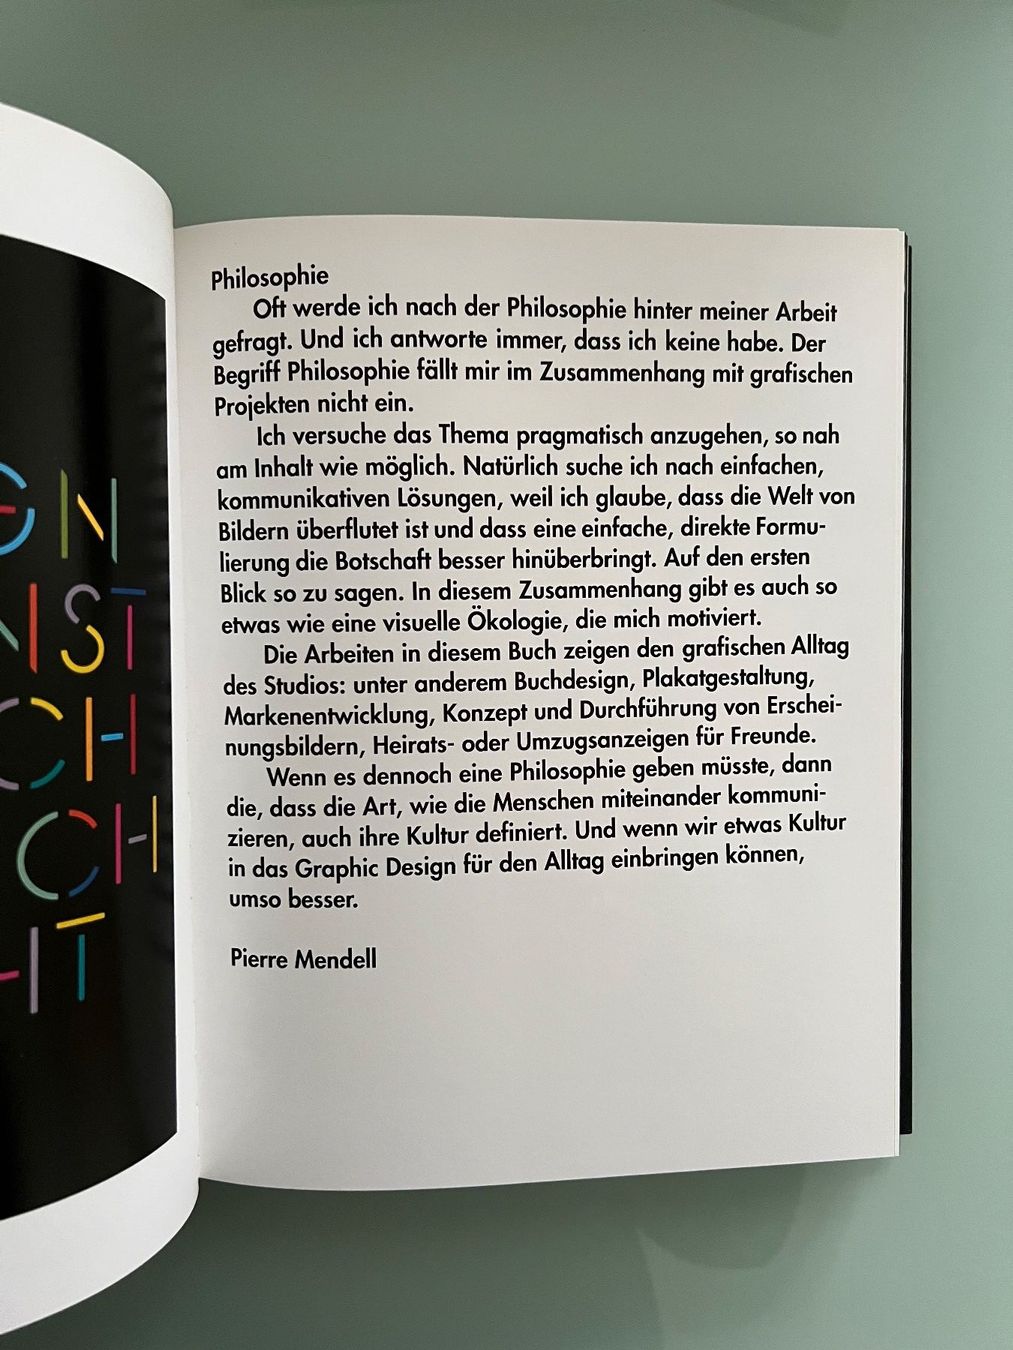 Philosophie
Oft werde ich nach der Philosophie hinter meiner Arbeit
gefragt. Und ich antworte immer, dass ich keine habe. Der
Begriff Philosophie fällt mir im Zusammenhang mit grafischen
Projekten nicht ein.
Ich versuche das Thema pragmatisch anzugehen, so nah
am Inhalt wie möglich. Natürlich suche ich nach einfachen,
kommunikativen Lösungen, weil ich glaube, dass die Welt von
Bildern überflutet ist und dass eine einfache, direkte Formu-
lierung die Botschaft besser hinüberbringt. Auf den ersten
Blick so zu sagen. In diesem Zusammenhang gibt es auch so
etwas wie eine visuelle Ökologie, die mich motiviert.
Die Arbeiten in diesem Buch zeigen den grafischen Alltag
des Studios: unter anderem Buchdesign, Plakatgestaltung,
Markenentwicklung, Konzept und Durchführung von Erschei-
nungsbildern, Heirats- oder Umzugsanzeigen für Freunde.
Wenn es dennoch eine Philosophie geben müsste, dann
die, dass die Art, wie die Menschen miteinander kommuni-
zieren, auch ihre Kultur definiert. Und wenn wir etwas Kultur
in das Graphic Design für den Alltag einbringen können,
umso besser.
Pierre Mendell